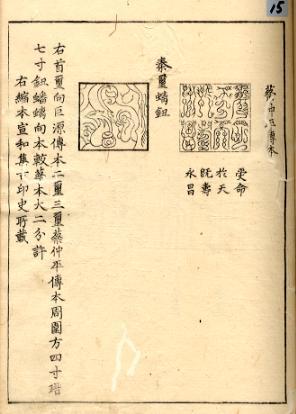 15
蔡仲平傳本
受命
於天
既壽
永昌
秦璽螭鈕
右首璽向巨源傳本二璽三璽蔡仲平傳本周圍方四寸璔
七寸鈕蟠螭向本較蔡本大二分許
右縮本宣和集古印史所載